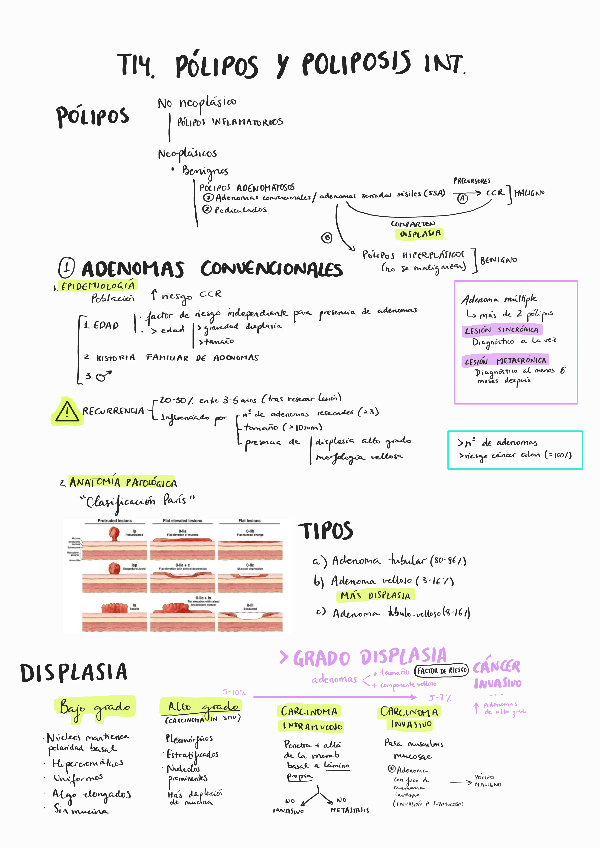 T14. PÓLIPOS Y POLIPOSIS INT.
PÓLIPOS
No neoplásico
PÓLIPOS INFLAMATORIOS
Neoplásicos
• Benignos
PÓLIPOS ADENOMATOSOS
① Adenomas convencionales / adenomas serrados sésiles (SSA)
PRECURSORES
Ⓐ
CCR
MALIGNO
② Pediculados
COMPARTEN
DISPLASIA
Ⓑ
PÓLIPOS HIPERPLÁSTICOS
(no se malignizan)
BENIGNO
① ADENOMAS CONVENCIONALES
1. EPIDEMIOLOGÍA
Población ↑ riesgo CCR
1. EDAD
· factor de riesgo independiente para presencia de adenomas
· > edad
> gravedad displasia
> tamaño
2. HISTORIA FAMILIAR DE ADENOMAS
3. ♂
Adenoma múltiple
↳ más de 2 pólipos
LESIÓN SINCRÓNICA
Diagnóstico a la vez
LESIÓN METACRÓNICA
Diagnóstico al menos 6
meses después
RECURRENCIA
20-50% entre 3-6 años (tras resecar lesión)
Influenciado por
nº de adenomas resecados (>3)
tamaño (>10mm)
presencia de
displasia alto grado
morfología vellosa
> nº de adenomas
> riesgo cáncer colon (=100%)
2. ANATOMÍA PATOLÓGICA
"Clasificación París"
Protruded lesions
Flat elevated lesions
Flat lesions
TIPOS
a) Adenoma tubular (80-86%)
b) Adenoma velloso (3-16%)
MÁS DISPLASIA
c) Adenoma túbulo-velloso (8-16%)
DISPLASIA
> GRADO DISPLASIA
adenomas
+ tamaño
FACTOR DE RIESGO
+ componente velloso
CÁNCER
INVASIVO
...
↑ adenomas
de alto grado
5-10%
5-7%
Bajo grado
· Núcleos mantienen
polaridad basal
· Hipercromáticos
· Uniformes
· Algo elongados
· Sin mucina
Alto grado
(CARCINOMA IN SITU)
Pleomórficos
· Estratificados
· Nucleolos
prominentes
Más depleción
de mucina
CARCINOMA
INTRAMUCOSO
Penetra + allá
de la memb
basal a lámina
propia
NO
INVASIVO
NO
METASTASIS
CARCINOMA
INVASIVO
Pasa muscularis
mucosae
Adenoma
con foco de
carcinoma
PÓLIPO
MALIGNO